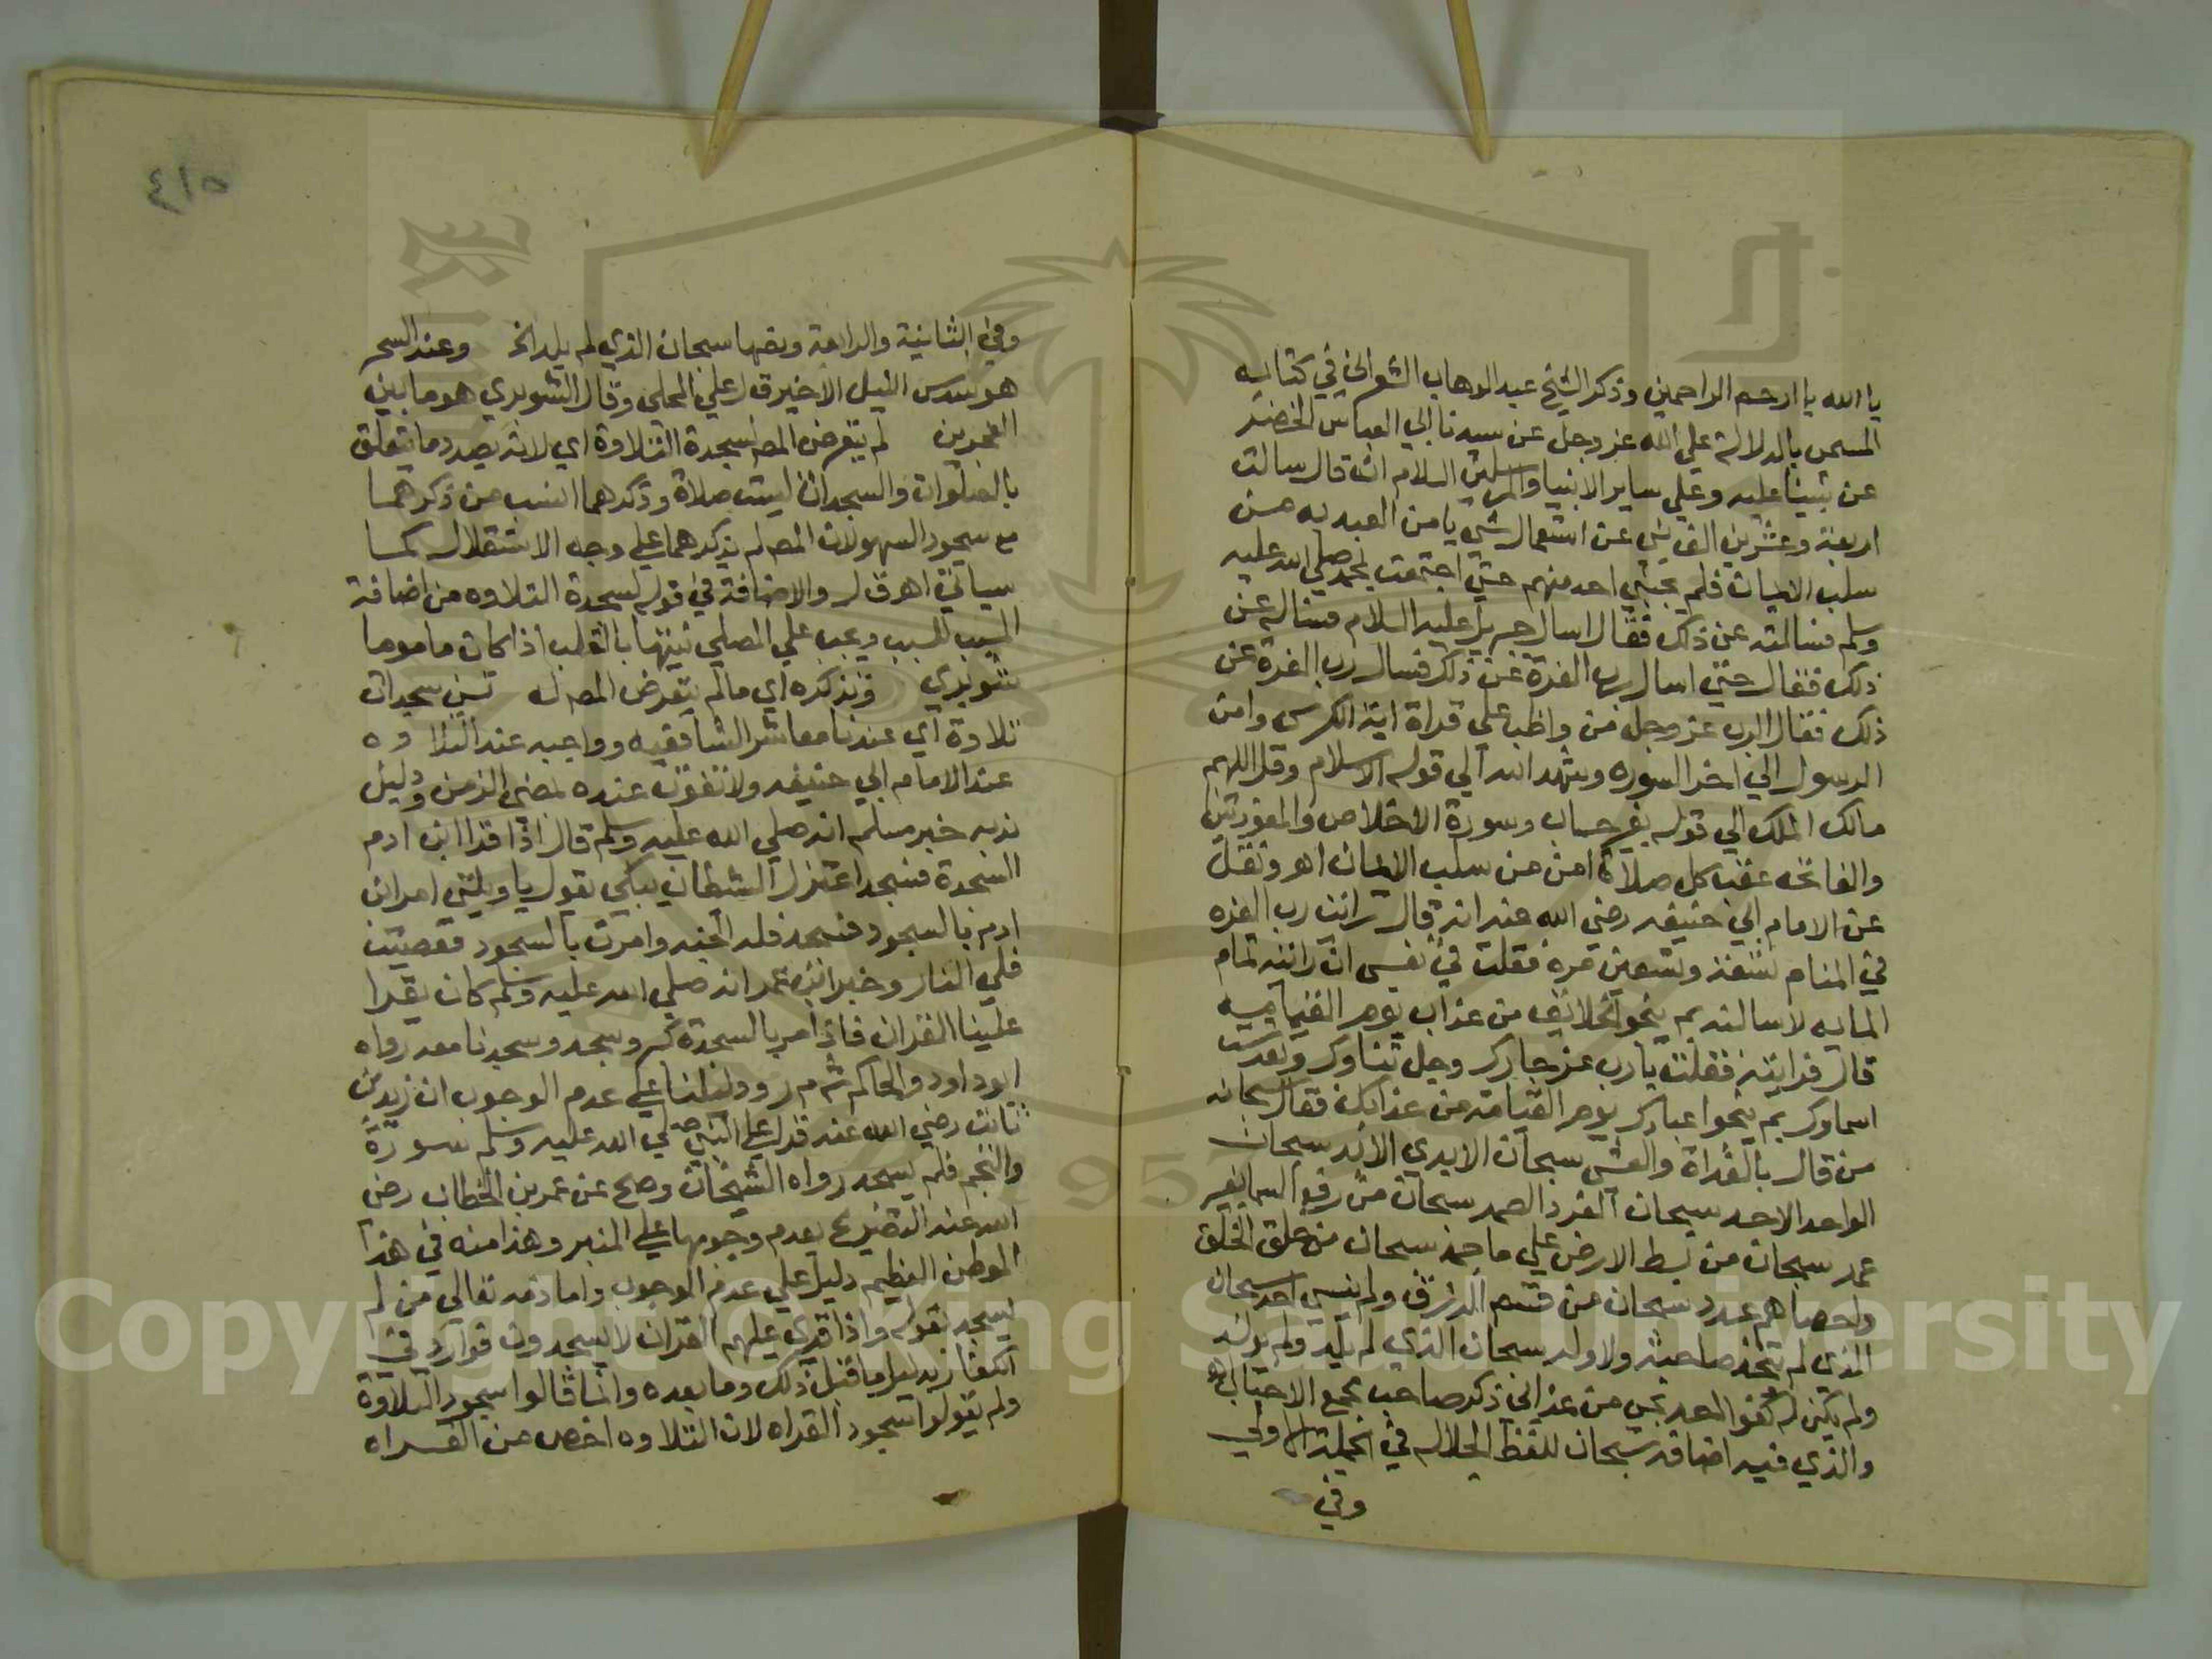 يا الله يا ارحم الراحمين وذكر الشيخ عبد الوهاب الشعراني في كتابه
المسمى بالدلالة على الله عز وجل عن سيدنا ابي العباس الخضر
عن نبينا عليه وعلي ساير الانبيا والمرسلين السلام انه قال سالت
اربعة وعشرين الف نبي عن استعمال شي يامن العبد به من
سلب الايمان فلم يجبني احد منهم حتي اجتمعت بمحمد صلي الله عليه
وسلم فسالته عن ذلك فقال اسال جبريل عليه السلام فساله عن
ذلك فقال حتي اسال رب العزة عن ذلك فسال رب العزة عن
ذلك فقال الرب عز وجل من واظب على قراة اية الكرسي وامن
الرسول الي اخر السوره وشهد الله الي قوله الاسلام وقل اللهم
مالك الملك الي قوله بغير حساب وسورة الاخلاص والمعوذتين
والفاتحه عقب كل صلاة امن من سلب الايمان اهـ ونقل
عن الامام ابي حنيفه رضي الله عنه انه قال رايت رب العزه
في المنام تسعة وتسعين مرة فقلت في نفسي ان رايته تمام
المايه لاسالنه بم ينجو الخلائق من عذاب يوم القيامه
قال فرايته فقلت يا رب عز جارك وجل ثناوك وتقدست
اسماوك بم ينجوا عبادك يوم القيامة من عذابك فقال سبحانه
من قال بالغداة والعشي سبحان الابدي الابد سبحان
الواحد الاحد سبحان الفرد الصمد سبحان من رفع السما بغير
عمد سبحان من بسط الارض علي ما جمد سبحان من خلق الخلق
واحصاهم عدد سبحان من قسم الرزق ولم ينسي احد سبحان
الذي لم يتخذ صاحبة ولا ولد سبحان الذي لم يلد ولم يولد
ولم يكن له كفوا احد نجي من عذابي ذكر صاحب مجمع الاحباب اهـ
والذي فيه اضافة سبحان للفظ الجلاله في الجملة الاولي
وفي
٤١٥
وفي الثانية والرابعة ونصها سبحان الذي لم يلد الخ وعند السحر
هو سدس الليل الاخير ق ل علي المحلي وقال الشوبري هو ما بين
الفجرين لم يتعرض المصـ لسجدة التلاوة اي لانه بصدد ما يتعلق
بالصلوات والسجدتان ليست صلاة وذكرهما انسب من ذكرهما
مع سجود السهو لان المصـ لم يذكرهما علي وجه الاستقلال كما
سياتي اهـ ق ل والاضافة في قوله لسجدة التلاوه من اضافة
المسبب للسبب ويجب علي المصلي نيتها بالقلب اذا كان ماموما
شوبري ونذكره اي ما لم يتعرض المصـ له تسن سجدات
تلاوة اي عندنا معاشر الشافعيه وواجبه عند التلاوه
عند الامام ابي حنيفه ولا تفوت عنده لمضي الزمن ودليل
ندبه خبر مسلم انه صلي الله عليه وسلم قال اذا قرا ابن ادم
السجدة فسجد اعتزل الشيطان يبكي يقول يا ويلتي امر ابن
ادم بالسجود فسجد فله الجنه وامرت بالسجود فعصيت
فلي النار وخبر ابن عمر انه صلي الله عليه وسلم كان يقرا
علينا القران فاذا مر بالسجدة كبر وسجد وسجدنا معه رواه
ابو داود والحاكم ش م ر ودليلنا علي عدم الوجوب ان زيد بن
ثابت رضي الله عنه قرا علي النبي صلي الله عليه وسلم سورة
والنجم فلم يسجد رواه الشيخان وصح عن عمر بن الخطاب رضي
الله عنه التصريح بعدم وجوبها علي المنبر وهذا منه في هذا
الموطن العظيم دليل علي عدم الوجوب واما ذمه تعالي من لم
يسجد بقوله واذا قري عليهم القران لا يسجدون فوارد في
الكفار بدليل ما قبل ذلك وما بعده وانما قالوا سجود التلاوة
ولم يقولوا سجود القراه لان التلاوه اخص من القراه
Copyright © King Saud University
1957